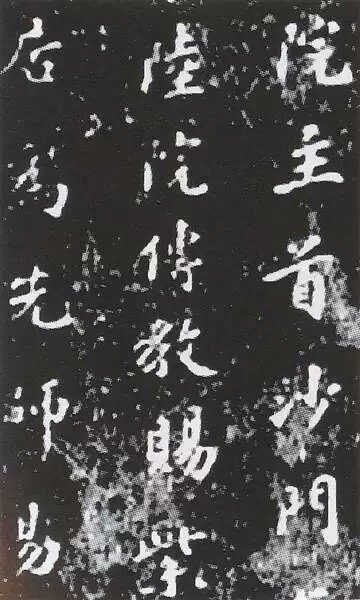 院主首沙門
陸院傳教賜紫
爲先師易